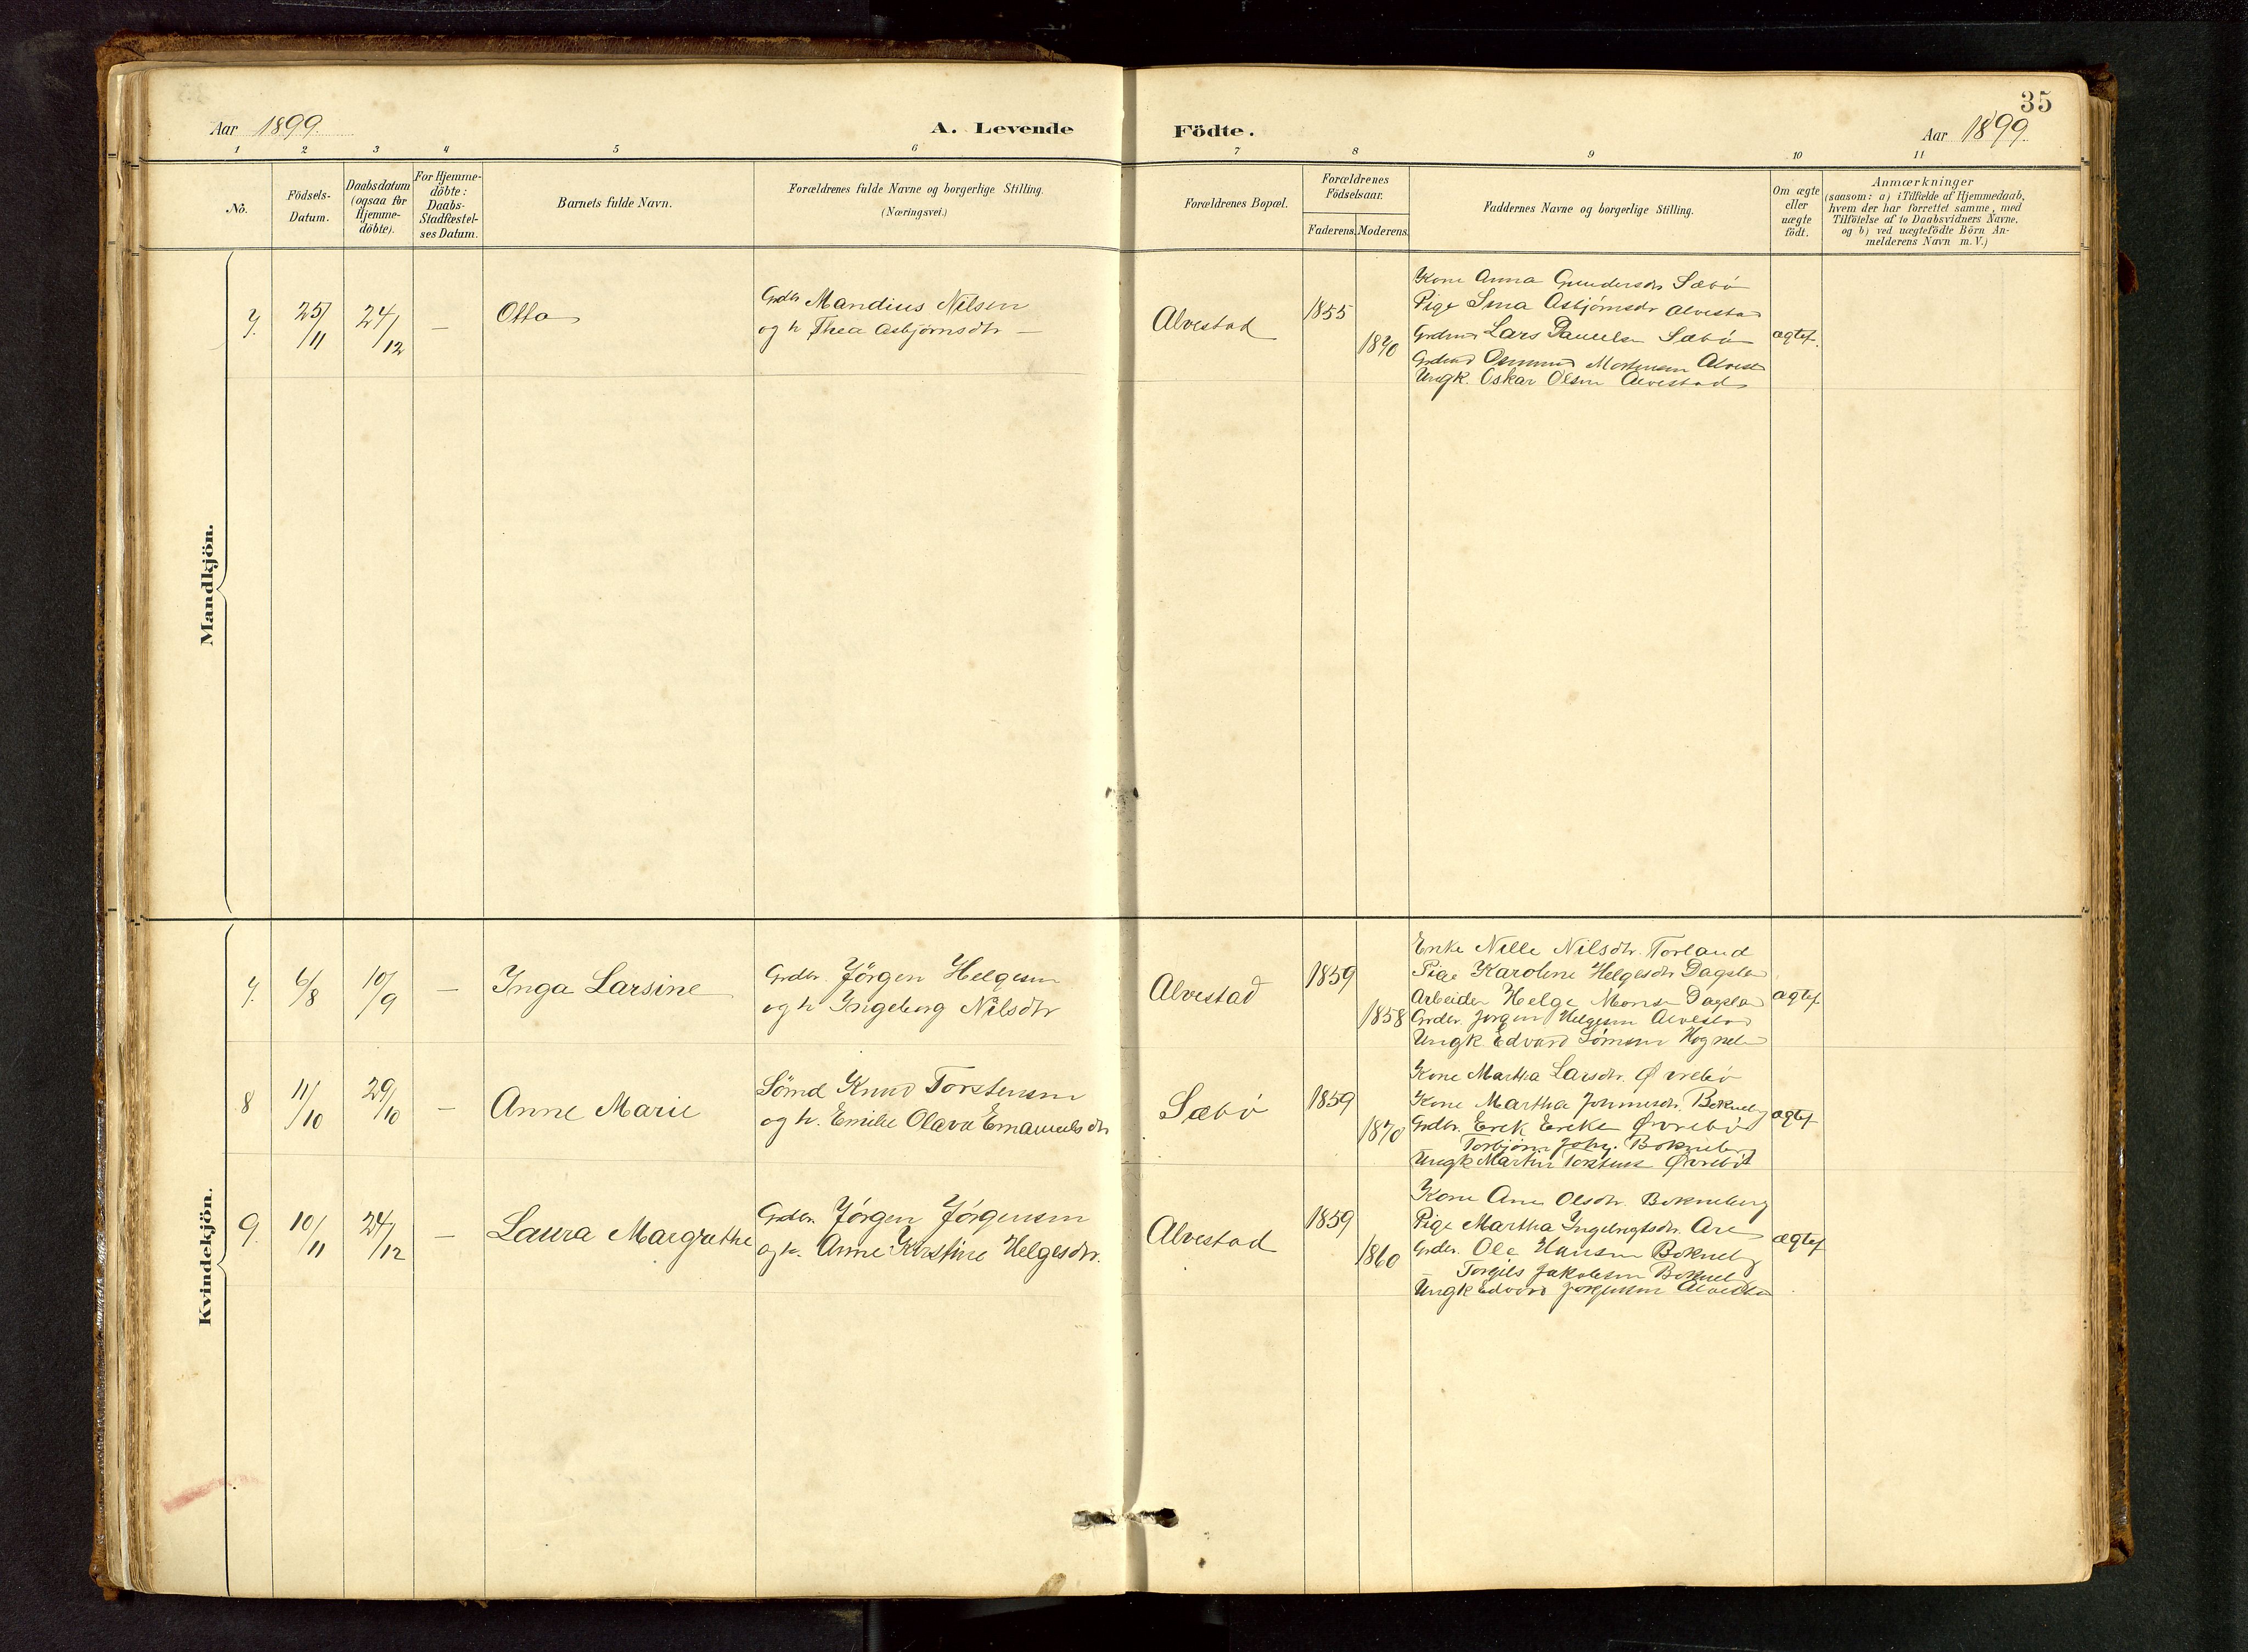 35
Aar 1899.
A. Levende Födte.
Aar 1899.
1 2 3 4 5 6 7 8 9 10 11
No.
Födsels-
Datum.
Daabsdatum
(ogsaa for
Hjemme-
döbte).
For Hjemme-
döbte:
Daabs-
Stadfæstel-
ses Datum.
Barnets fulde Navn.
Forældrenes fulde Navne og borgerlige Stilling.
(Næringsvei.)
Forældrenes Bopæl.
Forældrenes
Födselsaar.
Faderens. Moderens.
Faddernes Navne og borgerlige Stilling.
Om ægte
eller
uægte
födt.
Anmærkninger
(saasom: a) i Tilfælde af Hjemmedaab,
hvem der har forrettet samme, med
Tilföielse af to Daabsvidners Navne,
og b) ved uægtefödte Börn An-
melderens Navn m. V.)
Mandkjön.
7. 25/11 24/12 — Otto
Grdbr Mandius Nilsen
og h Thea Asbjørnsdtr —
Alvestad 1855 1870
Kone Anna Gundersdtr Sæbø
Pige Sina Asbjørnsdtr Alvestad
Lars Paulsen Sæbø
Osmund Mortensen Alvest
Ungk. Oskar Olsen Alvestad
ægtef.
Kvindekjön.
7. 6/8 10/9 — Inga Larsine
Grdbr. Jörgen Helgesen
og h Ingeborg Nilsdtr
Alvestad 1859 1858
Enke Nille Nilsdtr. Torland
Pige Karoline Helgesdtr Dagsla
Arbeider Helge Monsen Dagsla
Grdbr. Jørgen Helgesen Alvestad
Ungk Edvard
ægtef
8 11/10 29/10 — Anne Marie
Sömd Knud Torstensen
og h. Emilie Olava Emanuelsdtr
Sæbø 1859 1870
Kone Martha Larsdtr. Øvrebø
Kone Martha Bokneb
Grdbr. Erik Øvrebø
Torbjørn Bokneberg
Ungk Martin Torstens Øvrebø
ægtef
9. 10/11 24/12 — Laura Margrethe
Grdbr. Jörgen Jörgensen
og h. Anne Kirstine Helgesdtr.
Alvestad 1859 1860
Kone Ane Olsdtr. Bokneberg
Pige Martha Ingebrigtsdtr. Are
Grdbr. Ole Hansen Bokneb
Torgils Jakobsen Bokneb
Ungk Edvard Jørgensen Alvesta
ægtef